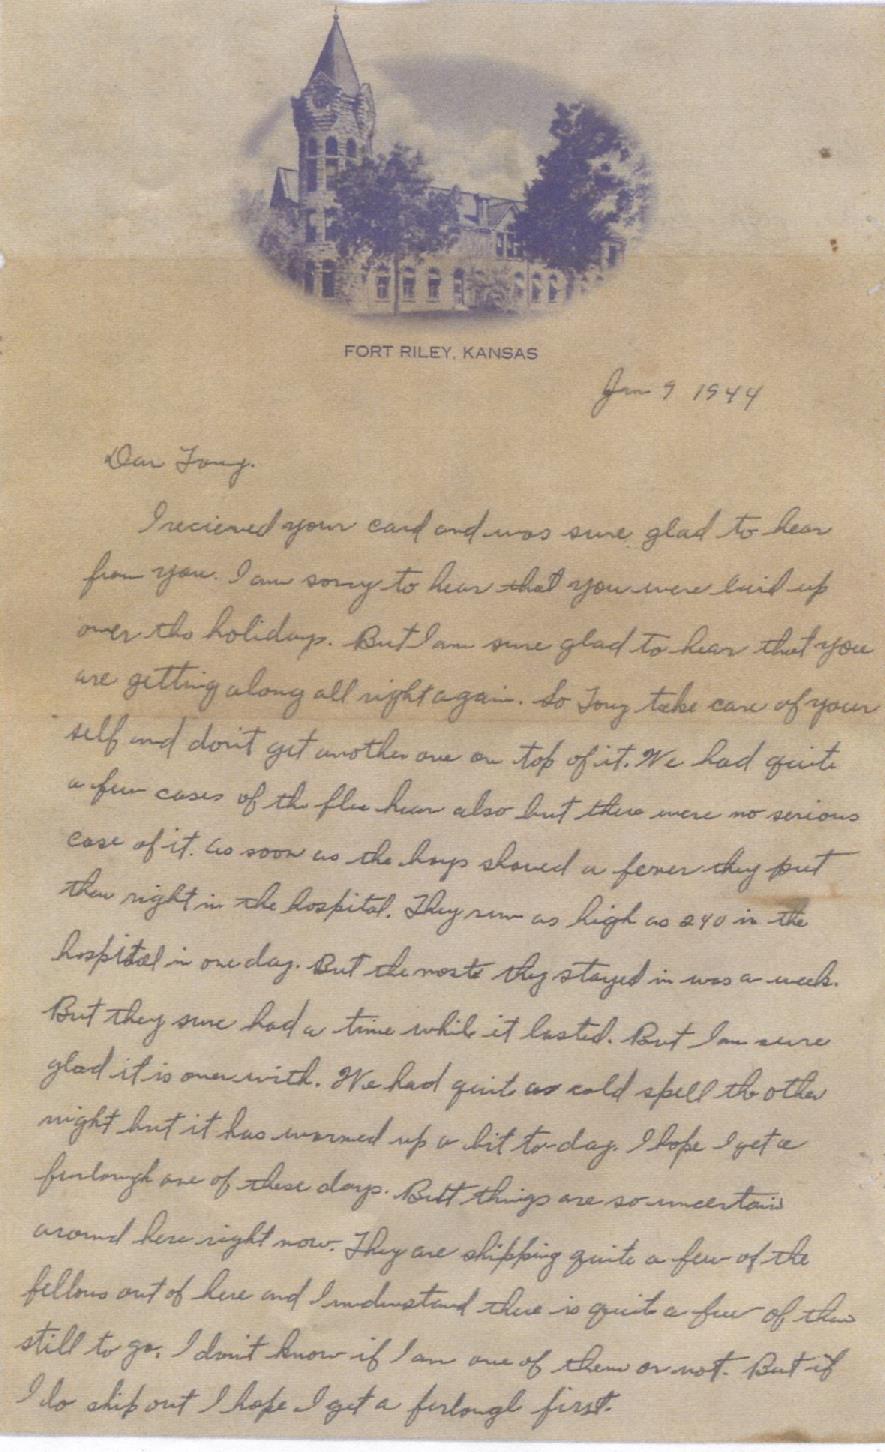 FORT RILEY, KANSAS
Jan 9 1944
Dear Tony.
I recieved your card and was sure glad to hear
from you. I am sorry to hear that you were laid up
over the holidays. But I am sure glad to hear that you
are getting along all right again. So Tony take care of your
self and don't get another one on top of it. We had quite
a few cases of the flue hear also but there were no serious
case of it. as soon as the boys showed a fever they put
them right in the hospital. They run as high as 240 in the
hospital in one day. But the most they stayed in was a week.
But they sure had a time while it lasted. But I am sure
glad it is over with. We had quite a cold spell the other
night but it has warmed up a bit to-day. I hope I get a
furlough one of these days. But things are so uncertain
around here right now. They are shipping quite a few of the
fellows out of here and I understand there is quite a few of them
still to go. I don't know if I am one of them or not. But if
I do ship out I hope I get a furlough first.